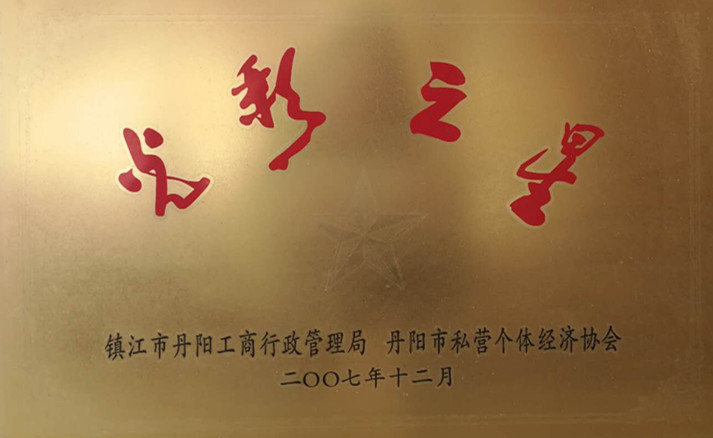 光彩之星
镇江市丹阳工商行政管理局 丹阳市私营个体经济协会
二〇〇七年十二月